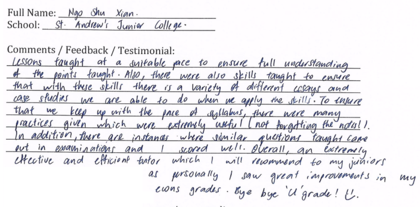 Full Name: Ngo Shu Xian.
School: St. Andrew's Junior College.
Comments / Feedback / Testimonial:
Lessons taught at a suitable pace to ensure full understanding
of the points taught. Also, there were also skills taught to ensure
that with these skills there is a variety of different essays and
case studies we are able to do when we apply the skills. To ensure
that we keep up with the pace of syllabus, there were many
practices given which were extremely useful (not forgetting the notes!).
In addition, there are instances where similar questions taught came
out in examinations and I scored well. Overall an extremely
effective and efficient tutor which I will recommend to my juniors
as personally I saw great improvements in my
econs grades. Bye bye 'U' grade! :)